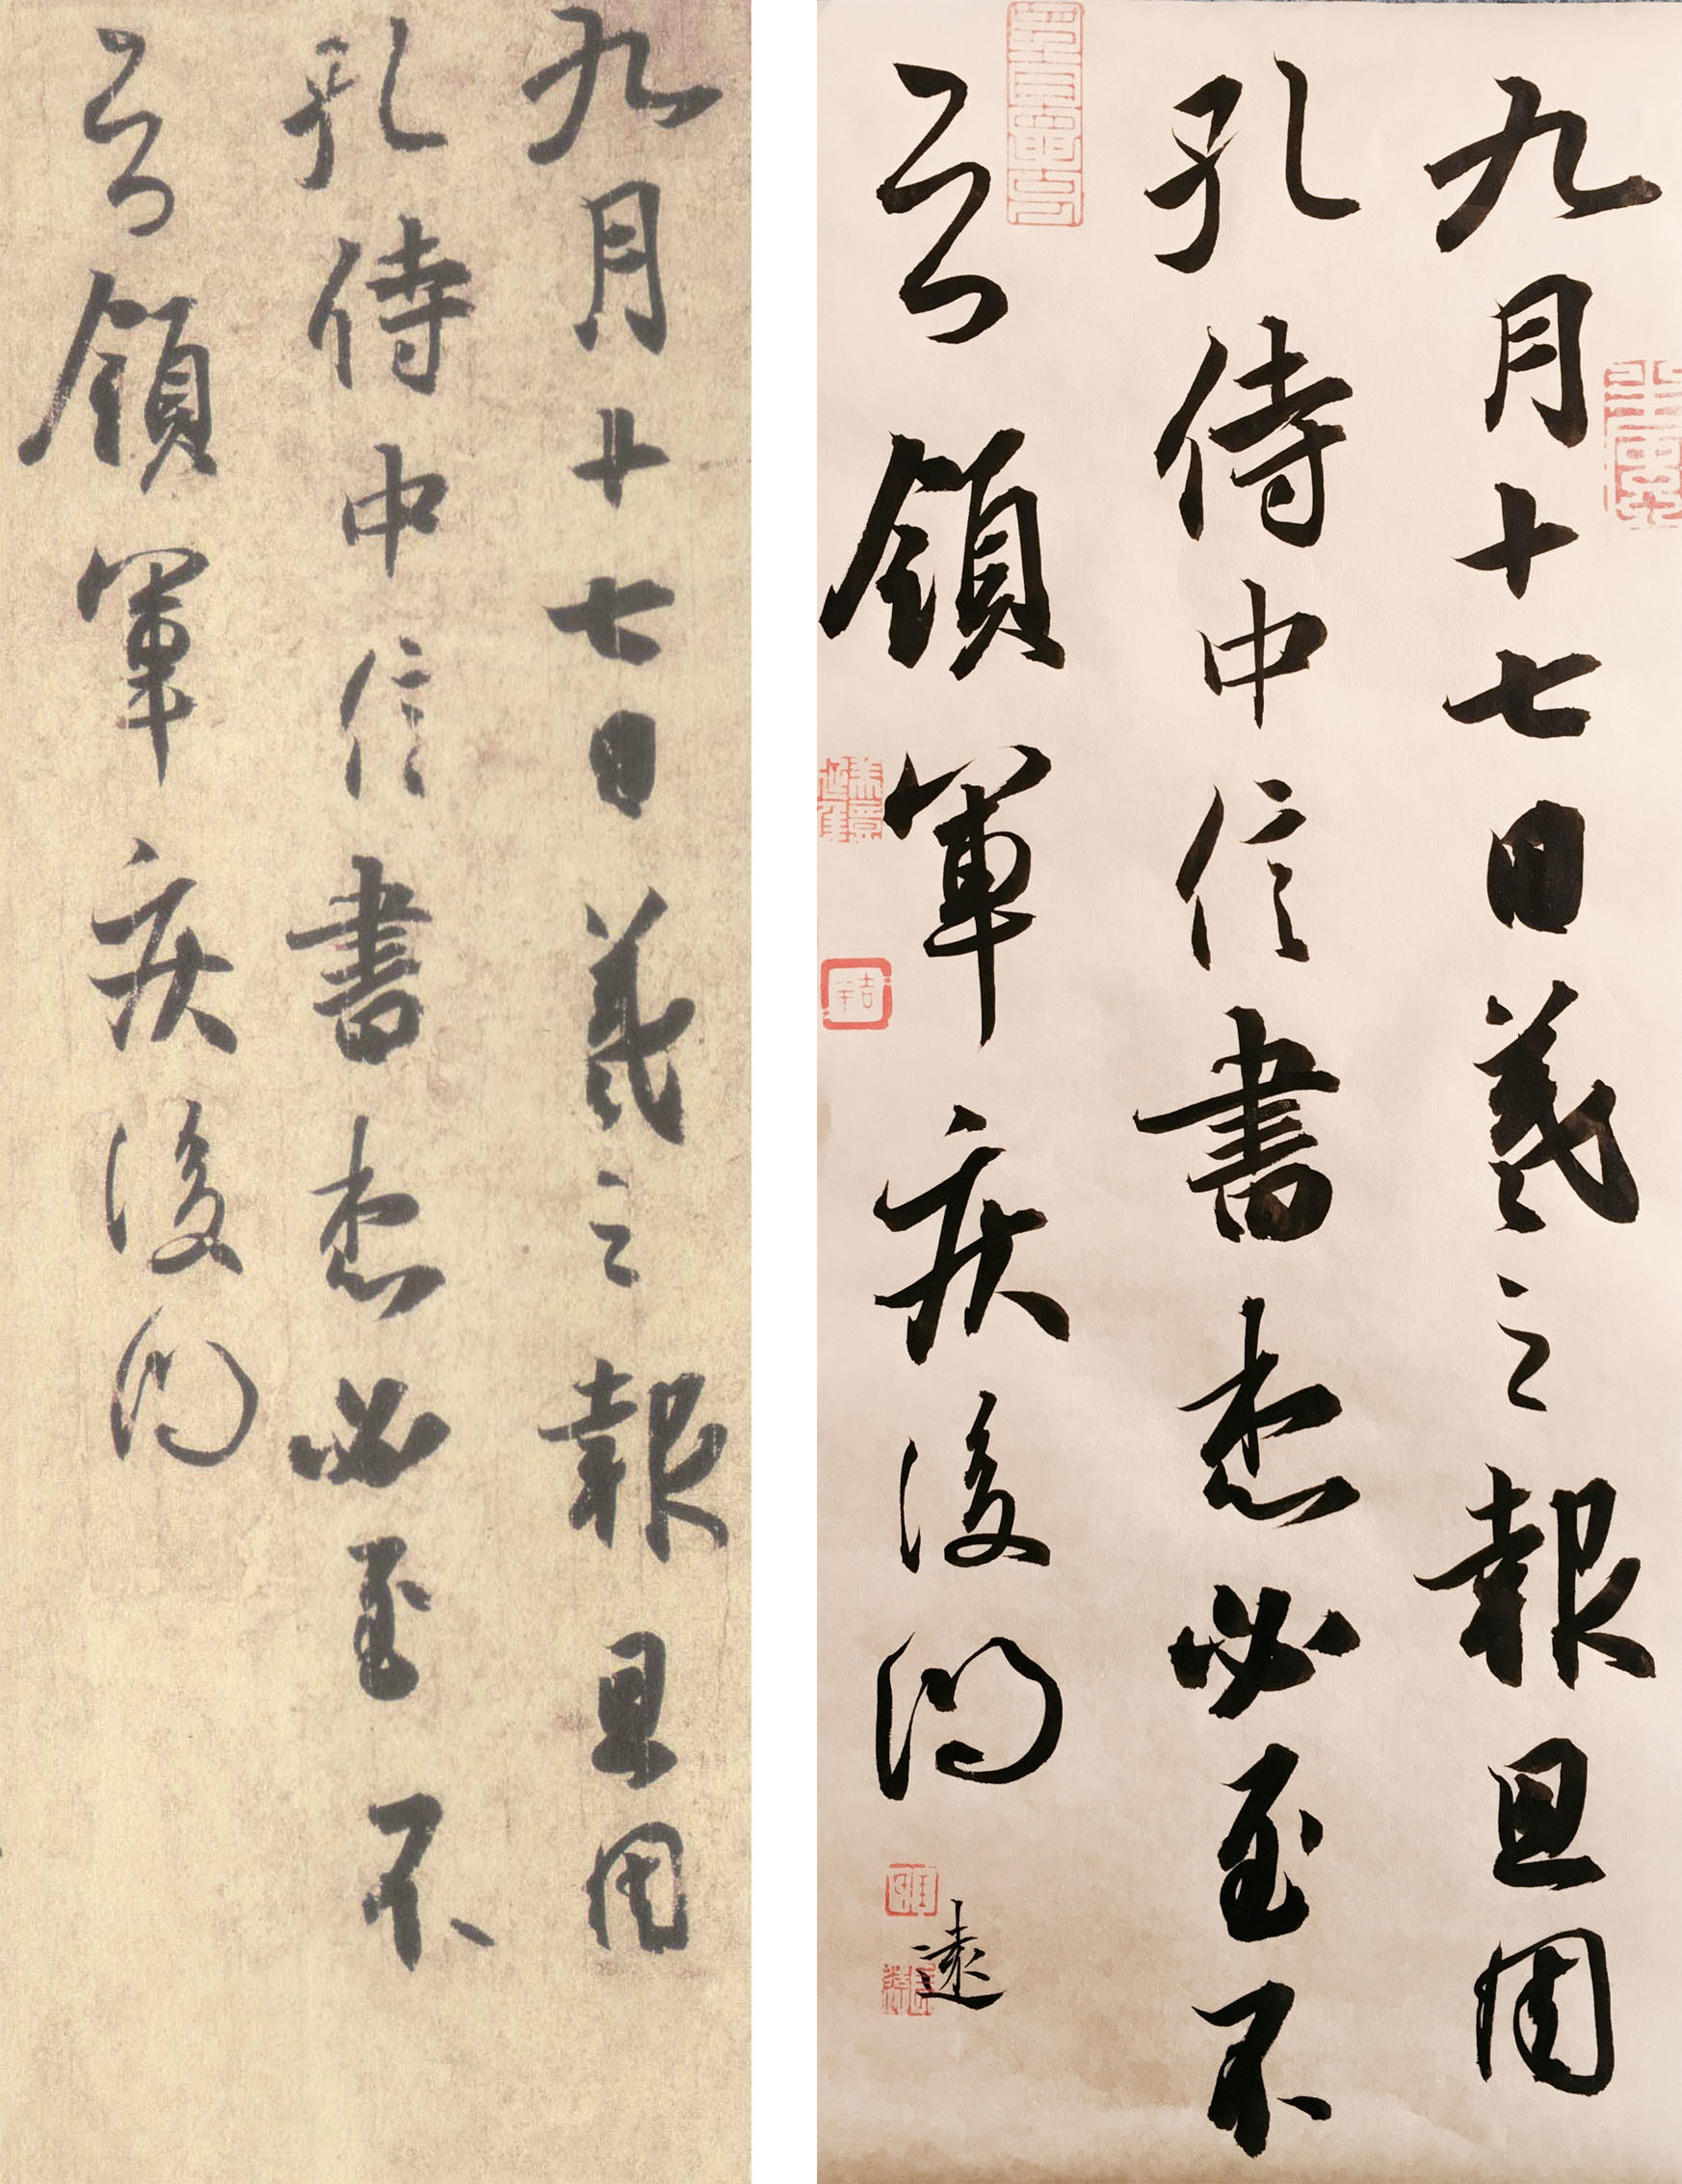 九月十七日羲之報且因
孔侍中信書想必至不
知領軍疾後問
九月十七日羲之報且因
孔侍中信書想必至不
知領軍疾後問
遠